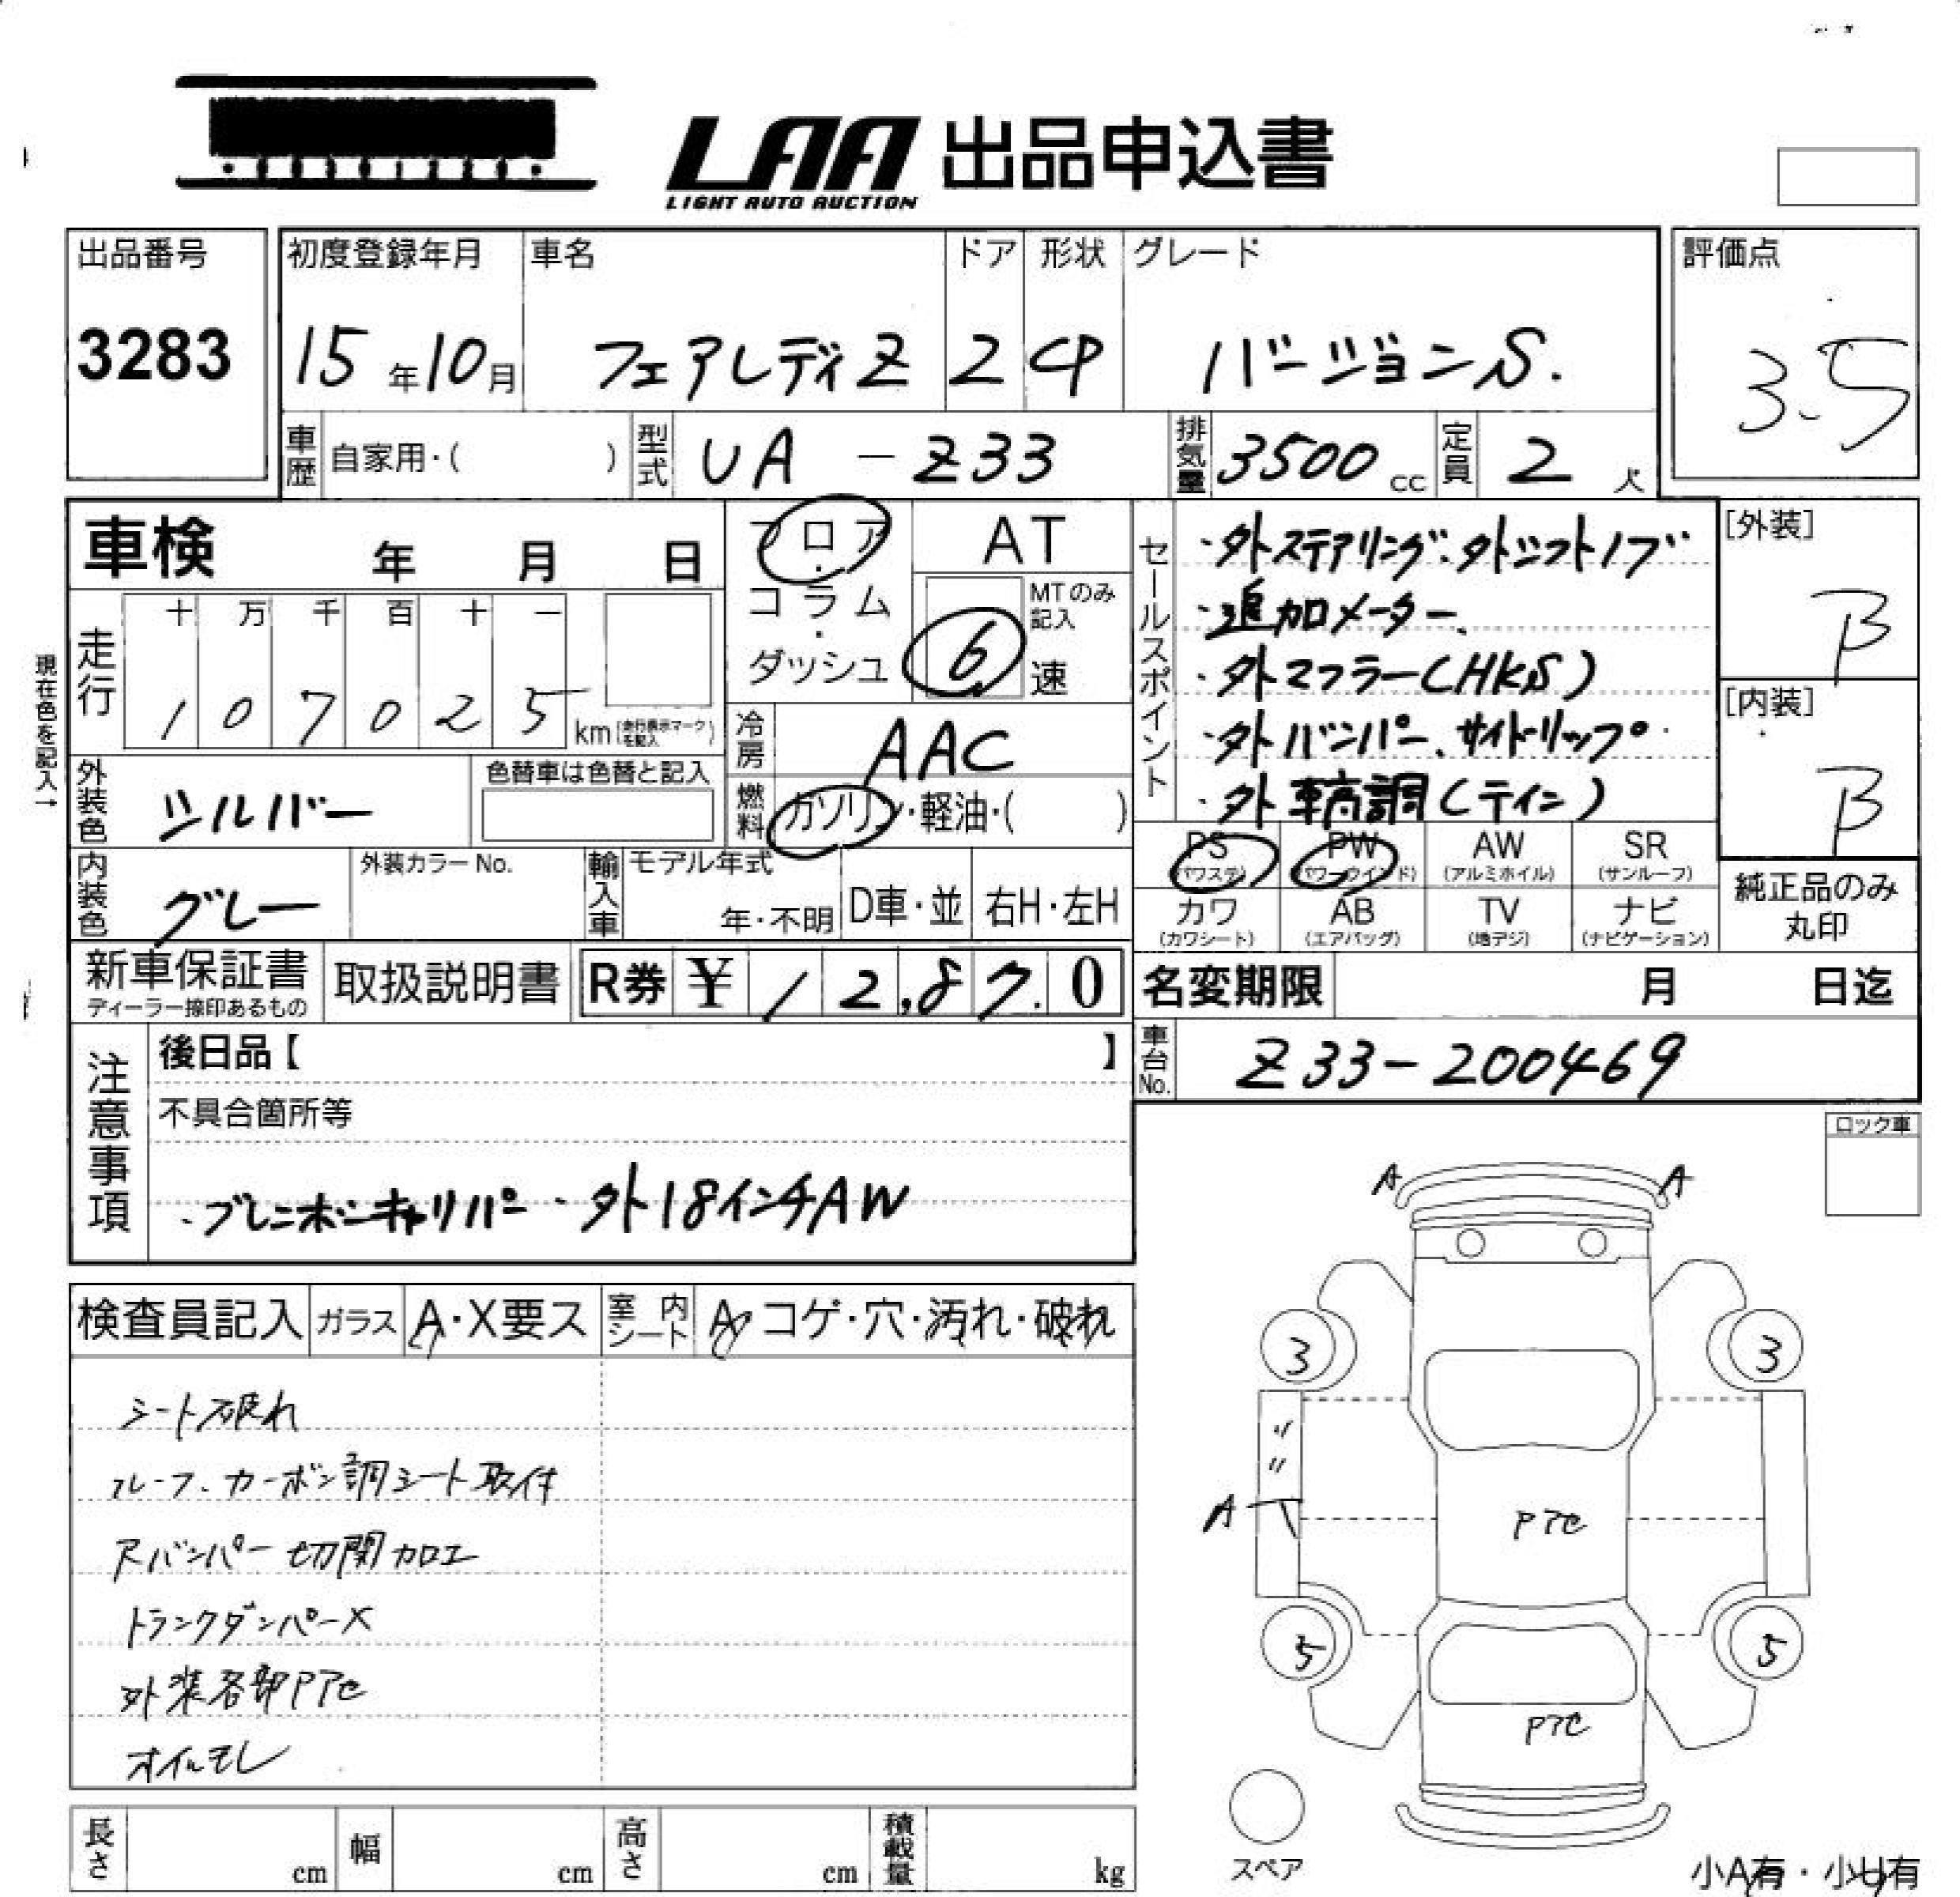 LAA 出品申込書
LIGHT AUTO AUCTION
出品番号
3283
初度登録年月 車名 ドア 形状 グレード
15年10月 フェアレディZ 2 CP バージョンS.
評価点
3.5
車歴 自家用・( ) 型式 UA-Z33 排気量 3500cc 定員 2人
車検 年 月 日
フロア・コラム・ダッシュ
AT
MTのみ記入
6速
現在色を記入→
走行 十 万 千 百 十 一
1 0 7 0 2 5 km (走行表示マークを記入)
冷房 AAC
外装色 シルバー 色替車は色替と記入
燃料 ガソリン・軽油・( )
内装色 グレー 外装カラーNo. 輸入車 モデル年式 年・不明 D車・並 右H・左H
セールスポイント
・外ステアリング・外シフトノブ
・追加メーター、
・外マフラー(HKS)
・外バンパー、サイドリップ・
・外車高調(テイン)
[外装]
B
[内装]
B
PS (パワステ) PW (パワーウインド) AW (アルミホイル) SR (サンルーフ)
カワ (カワシート) AB (エアバッグ) TV (地デジ) ナビ (ナビゲーション)
純正品のみ
丸印
新車保証書 ディーラー捺印あるもの 取扱説明書 R券 ¥ 12,870
名変期限 月 日迄
車台No. Z33-200469
注意事項
後日品【 】
不具合箇所等
・ブレンボキャリパー・外18インチAW
ロック車
検査員記入 ガラス A・X要ス 室内シート A コゲ・穴・汚れ・破れ
シート破れ
ルーフ、カーボン調シート取付
Rバンパー切開加工
トランクダンパーX
外装各部PTC
オイルモレ
A A
3 3
〃
〃
A
PTC
5 5
PTC
スペア
小A有・小U有
長さ cm 幅 cm 高さ cm 積載量 kg